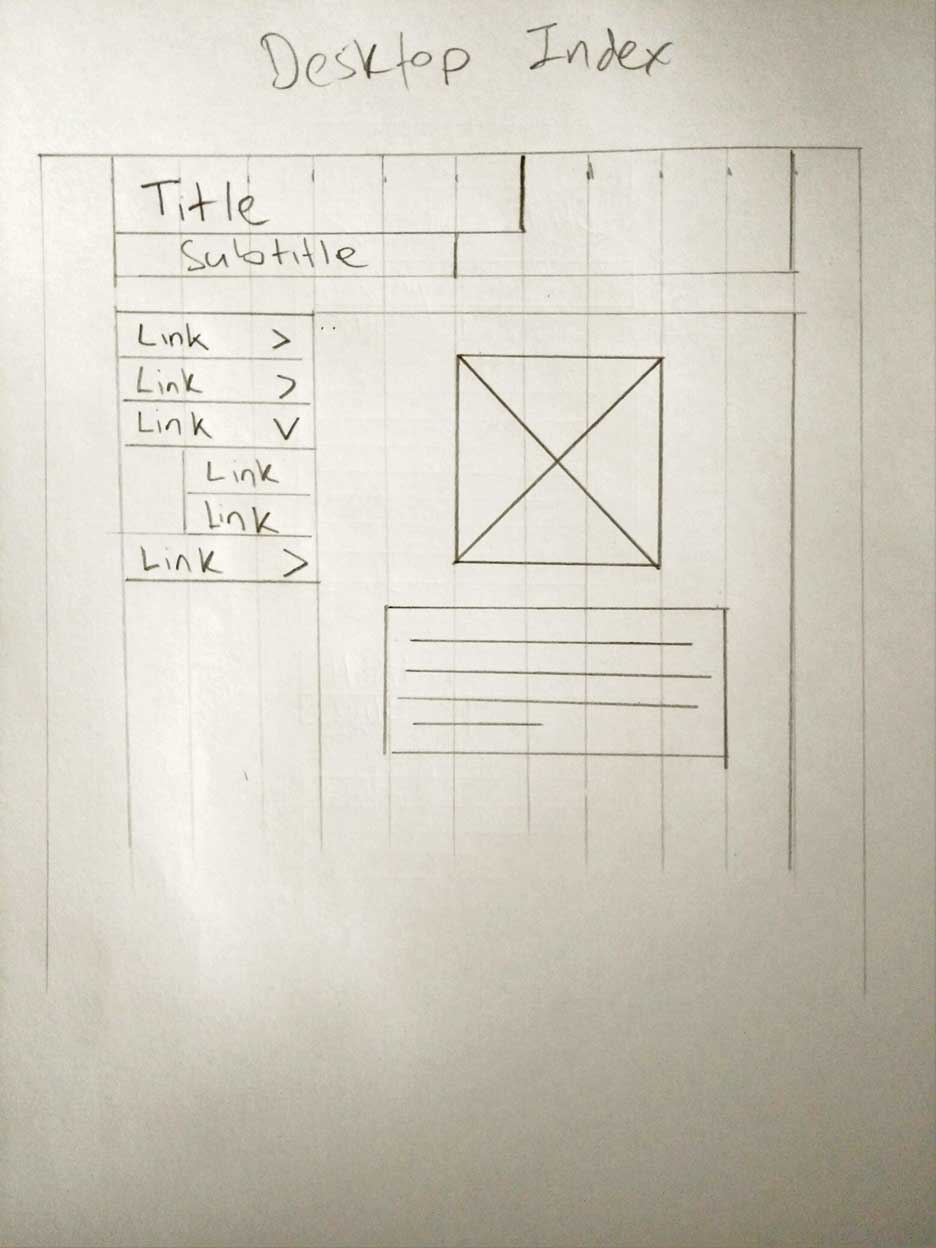 Desktop Index
Title
Subtitle
Link >
Link >
Link V
Link
Link
Link >